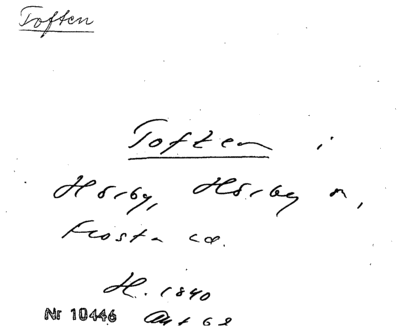 Toften
Toften i
Hörby, Hörby sn,
Frosta hd.
H. 1840
Nr 10446 Akt 68